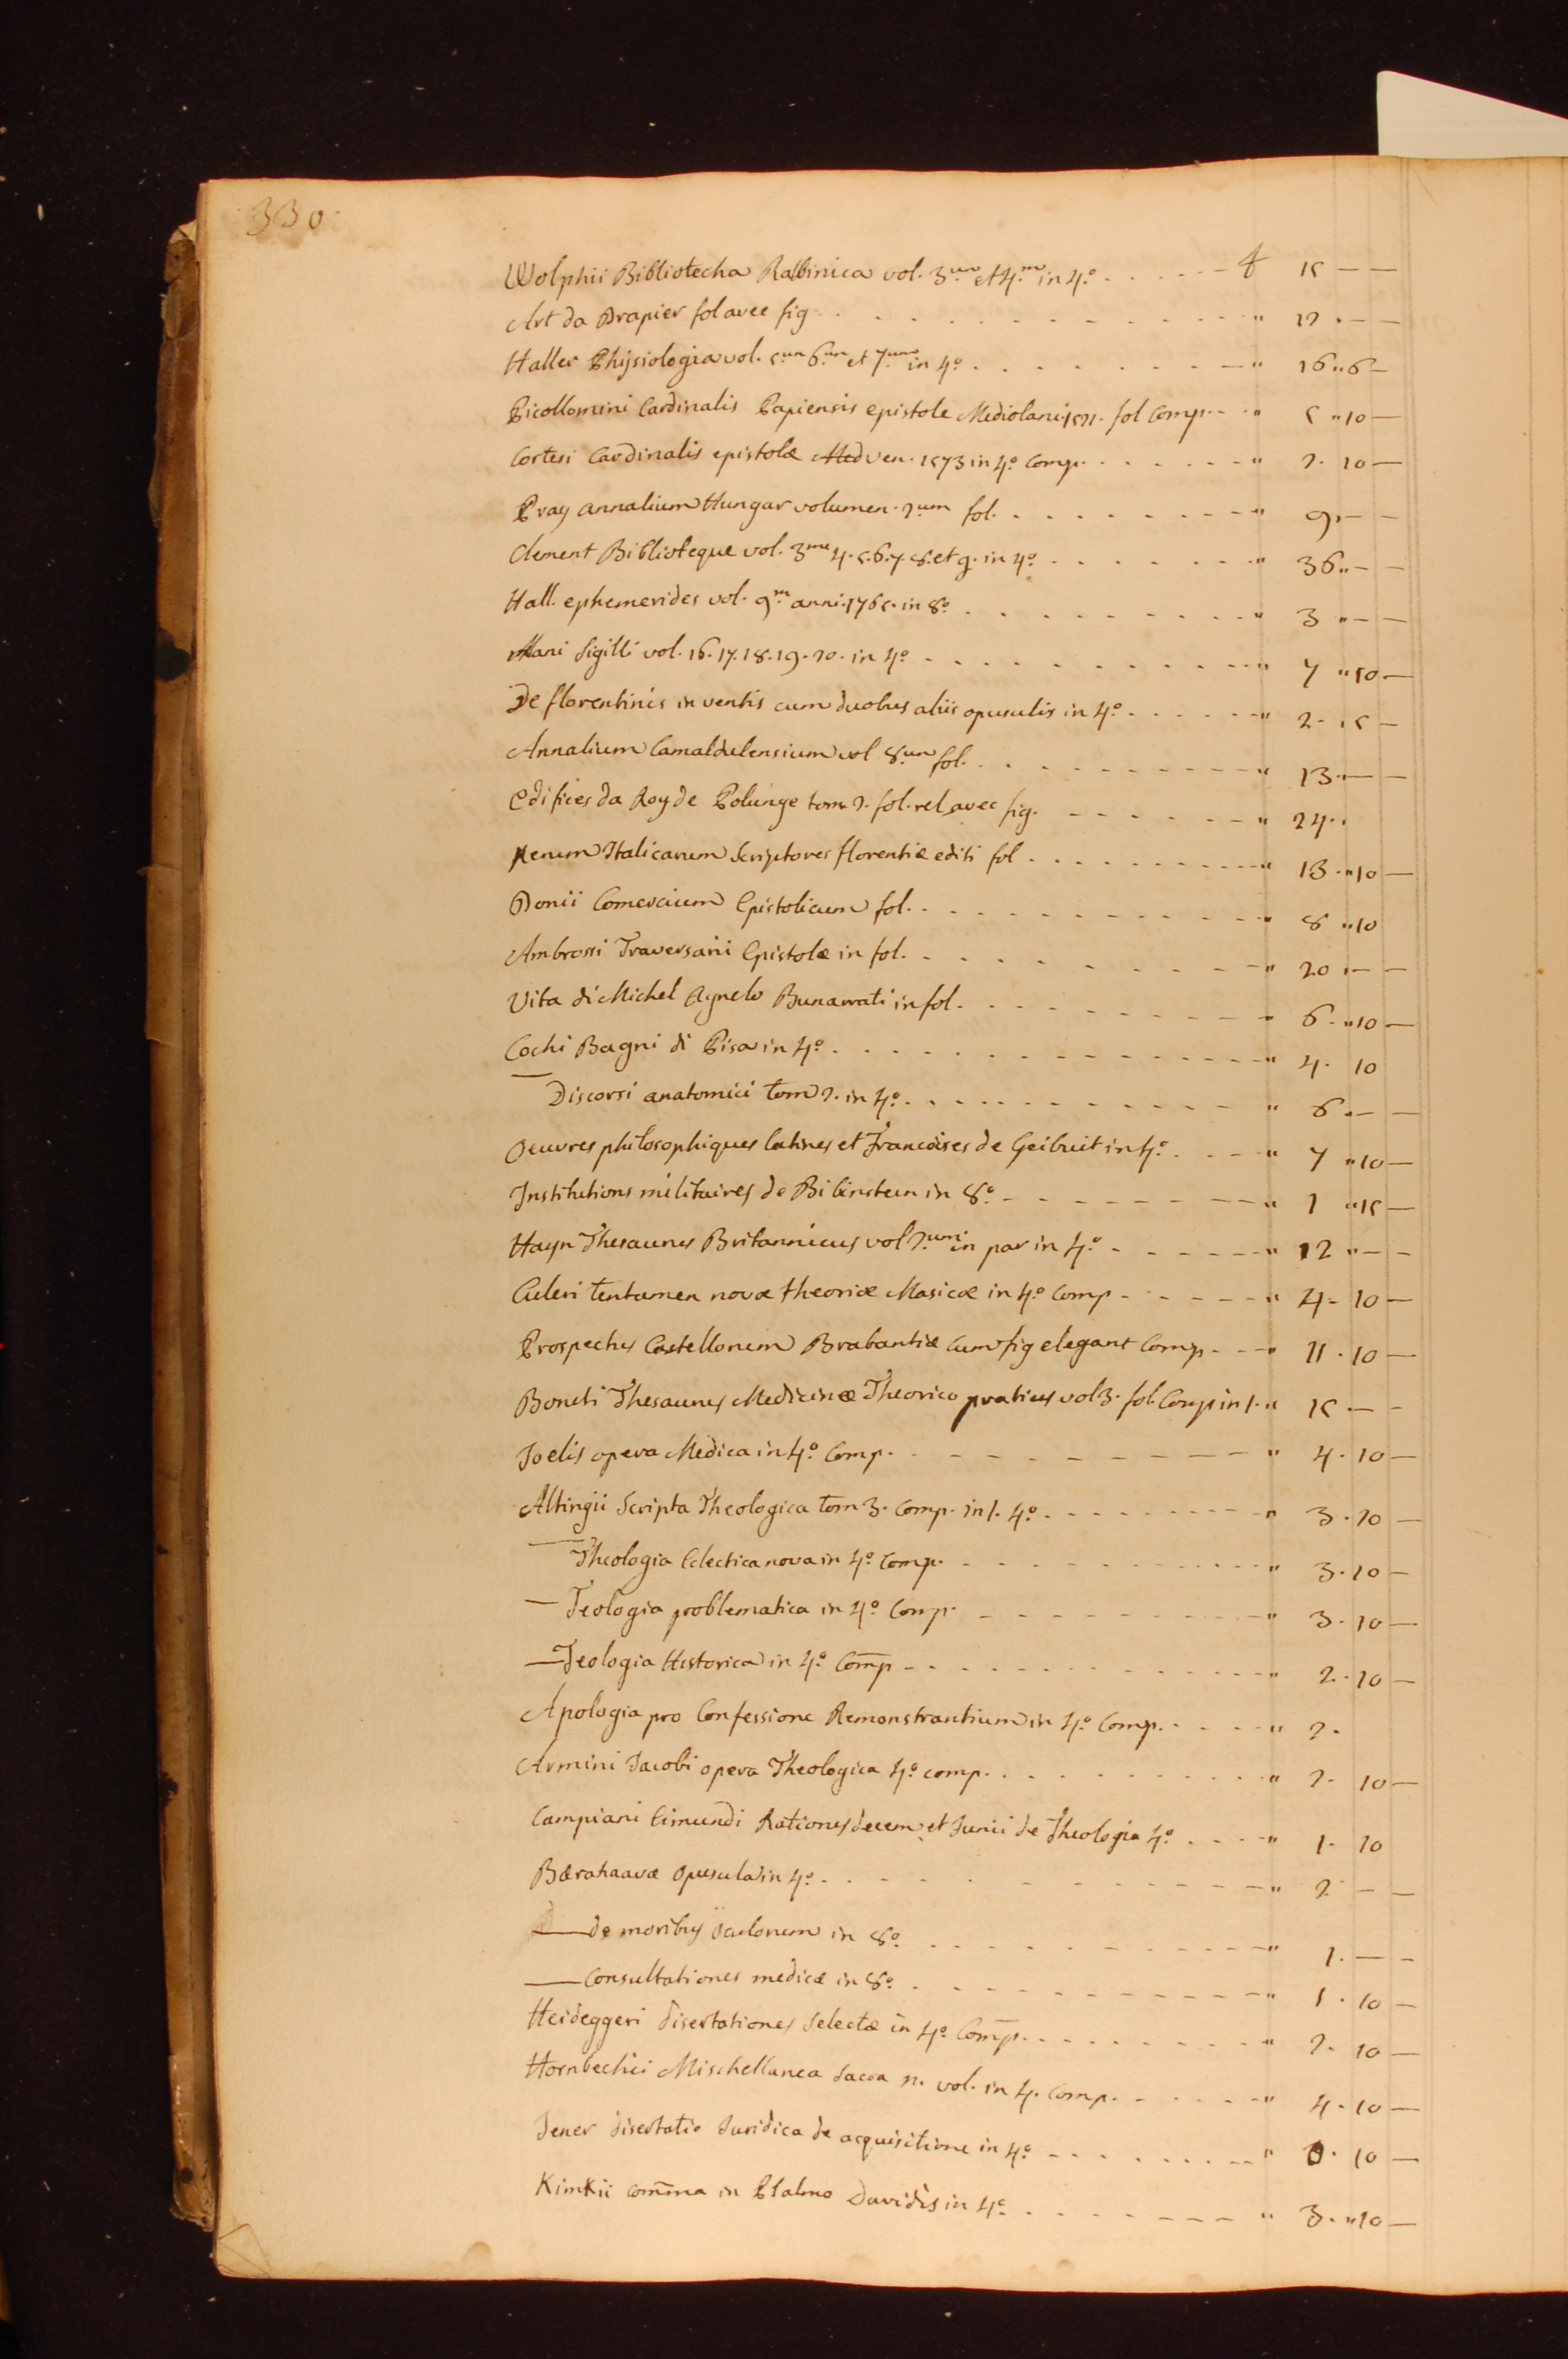 330
Wolphii Bibliotecha Rabbinica vol. 3.um et 4.m in 4.o . . . . . 15 — —
Art da Drapier fol avec fig . . . . . " 12 . — —
Haller Phijsiologia vol. 5.um 6.um et 7.um in 4.o . . . . . " 16 " 6 —
Picollomini Cardinalis Papiensis epistole Mediolani 1521. fol Comp. . . " 5 " 10 —
Cortesi Cardinalis epistolæ Med Ven. 1573 in 4.o Comp. . . . . . " 2. 10 —
Pray Annalium Hungar volumen. 2um fol. . . . . . " 9 " — —
Clement Biblioteque vol. 3me 4. 5. 6. 7. 8. et 9. in 4.o . . . . . " 36 " — —
Hall. ephemerides vol. 9.m anni. 1765. in 8.o . . . . . " 3 " — —
Mani Sigilli vol. 16. 17. 18. 19. 20. in 4.o . . . . . " 7 " 10 —
De florentinis inventis cum duobus aliis opusulis in 4.o . . . . . " 2. 15 —
Annalium Camaldulensium vol 8.um fol. . . . . . " 13 " — —
Edifices da Roy de Polunge tom 2. fol. rel avec fig. . . . . . " 24 . .
Rerum Italicarum Scriptores florentiæ editi fol . . . . . " 13 " 10 —
Donii Comercium Epistolicum fol. . . . . . " 8 " 10
Ambrossi Traversarii Epistolæ in fol. . . . . . " 20 " — —
Vita di Michel Agnelo Bunarrati in fol. . . . . . " 6 " 10 —
Cochi Bagni di Pisa in 4.o . . . . . " 4. 10
— Discorsi anatomici tom 2. in 4.o . . . . . " 6 " — —
Oeuvres philosophiques latines et Francoises de Geibnit in 4.o . . . . " 7 " 10 —
Institutions militaires de Bilinsteen in 8.o . . . . . " 1 " 15 —
Hayn Thesaurus Britannicus vol 2.um in par in 4.o . . . . . " 12 " — —
Euleri tentamen novæ theoriæ Masicæ in 4.o Comp . . . . . " 4. 10 —
Prospectus Castellorum Brabantiæ Cum fig elegant Comp . . . " 11 . 10 —
Boneti Thesaurus Medicinæ Theorico praticus vol 3. fol. Comp in 1. " 15 . — —
Joelis opera Medica in 4.o Comp. . . . . . " 4 . 10 —
Altingii Scripta Theologica tom 3. Comp. in 1. 4.o . . . . . " 3 . 10 —
— Theologia Eclectica nova in 4.o Comp. . . . . . " 3. 10 —
— Teologia problematica in 4.o Comp. . . . . . " 3. 10 —
— Teologia Historica in 4.o Comp . . . . . " 2. 10 —
Apologia pro Confessione Remonstrantium in 4.o Comp. . . . . . " 2.
Armini Jacobi opera Theologica 4.o comp. . . . . . " 2. 10 —
Campiani Eimundi Rationes decem et Junii de Theologia 4.o . . . . " 1. 10
Bærahaavæ Opusula in 4.o . . . . . " 2 — —
— de moribus oculorum in 8.o . . . . . " 1. — —
— Consultationes medicæ in 8.o . . . . . " 1. 10 —
Heideggeri disertationes Selectæ in 4.o Comp. . . . . . " 2. 10 —
Hornbechii Mischellanea Sacra n. vol. in 4. Comp. . . . . . " 4. 10 —
Jener disertatio Juridica de acquisitione in 4.o . . . . . " 0. 10 —
Kimkii comma in Psalmo Davidis in 4.o . . . . . " 3. " 10 —